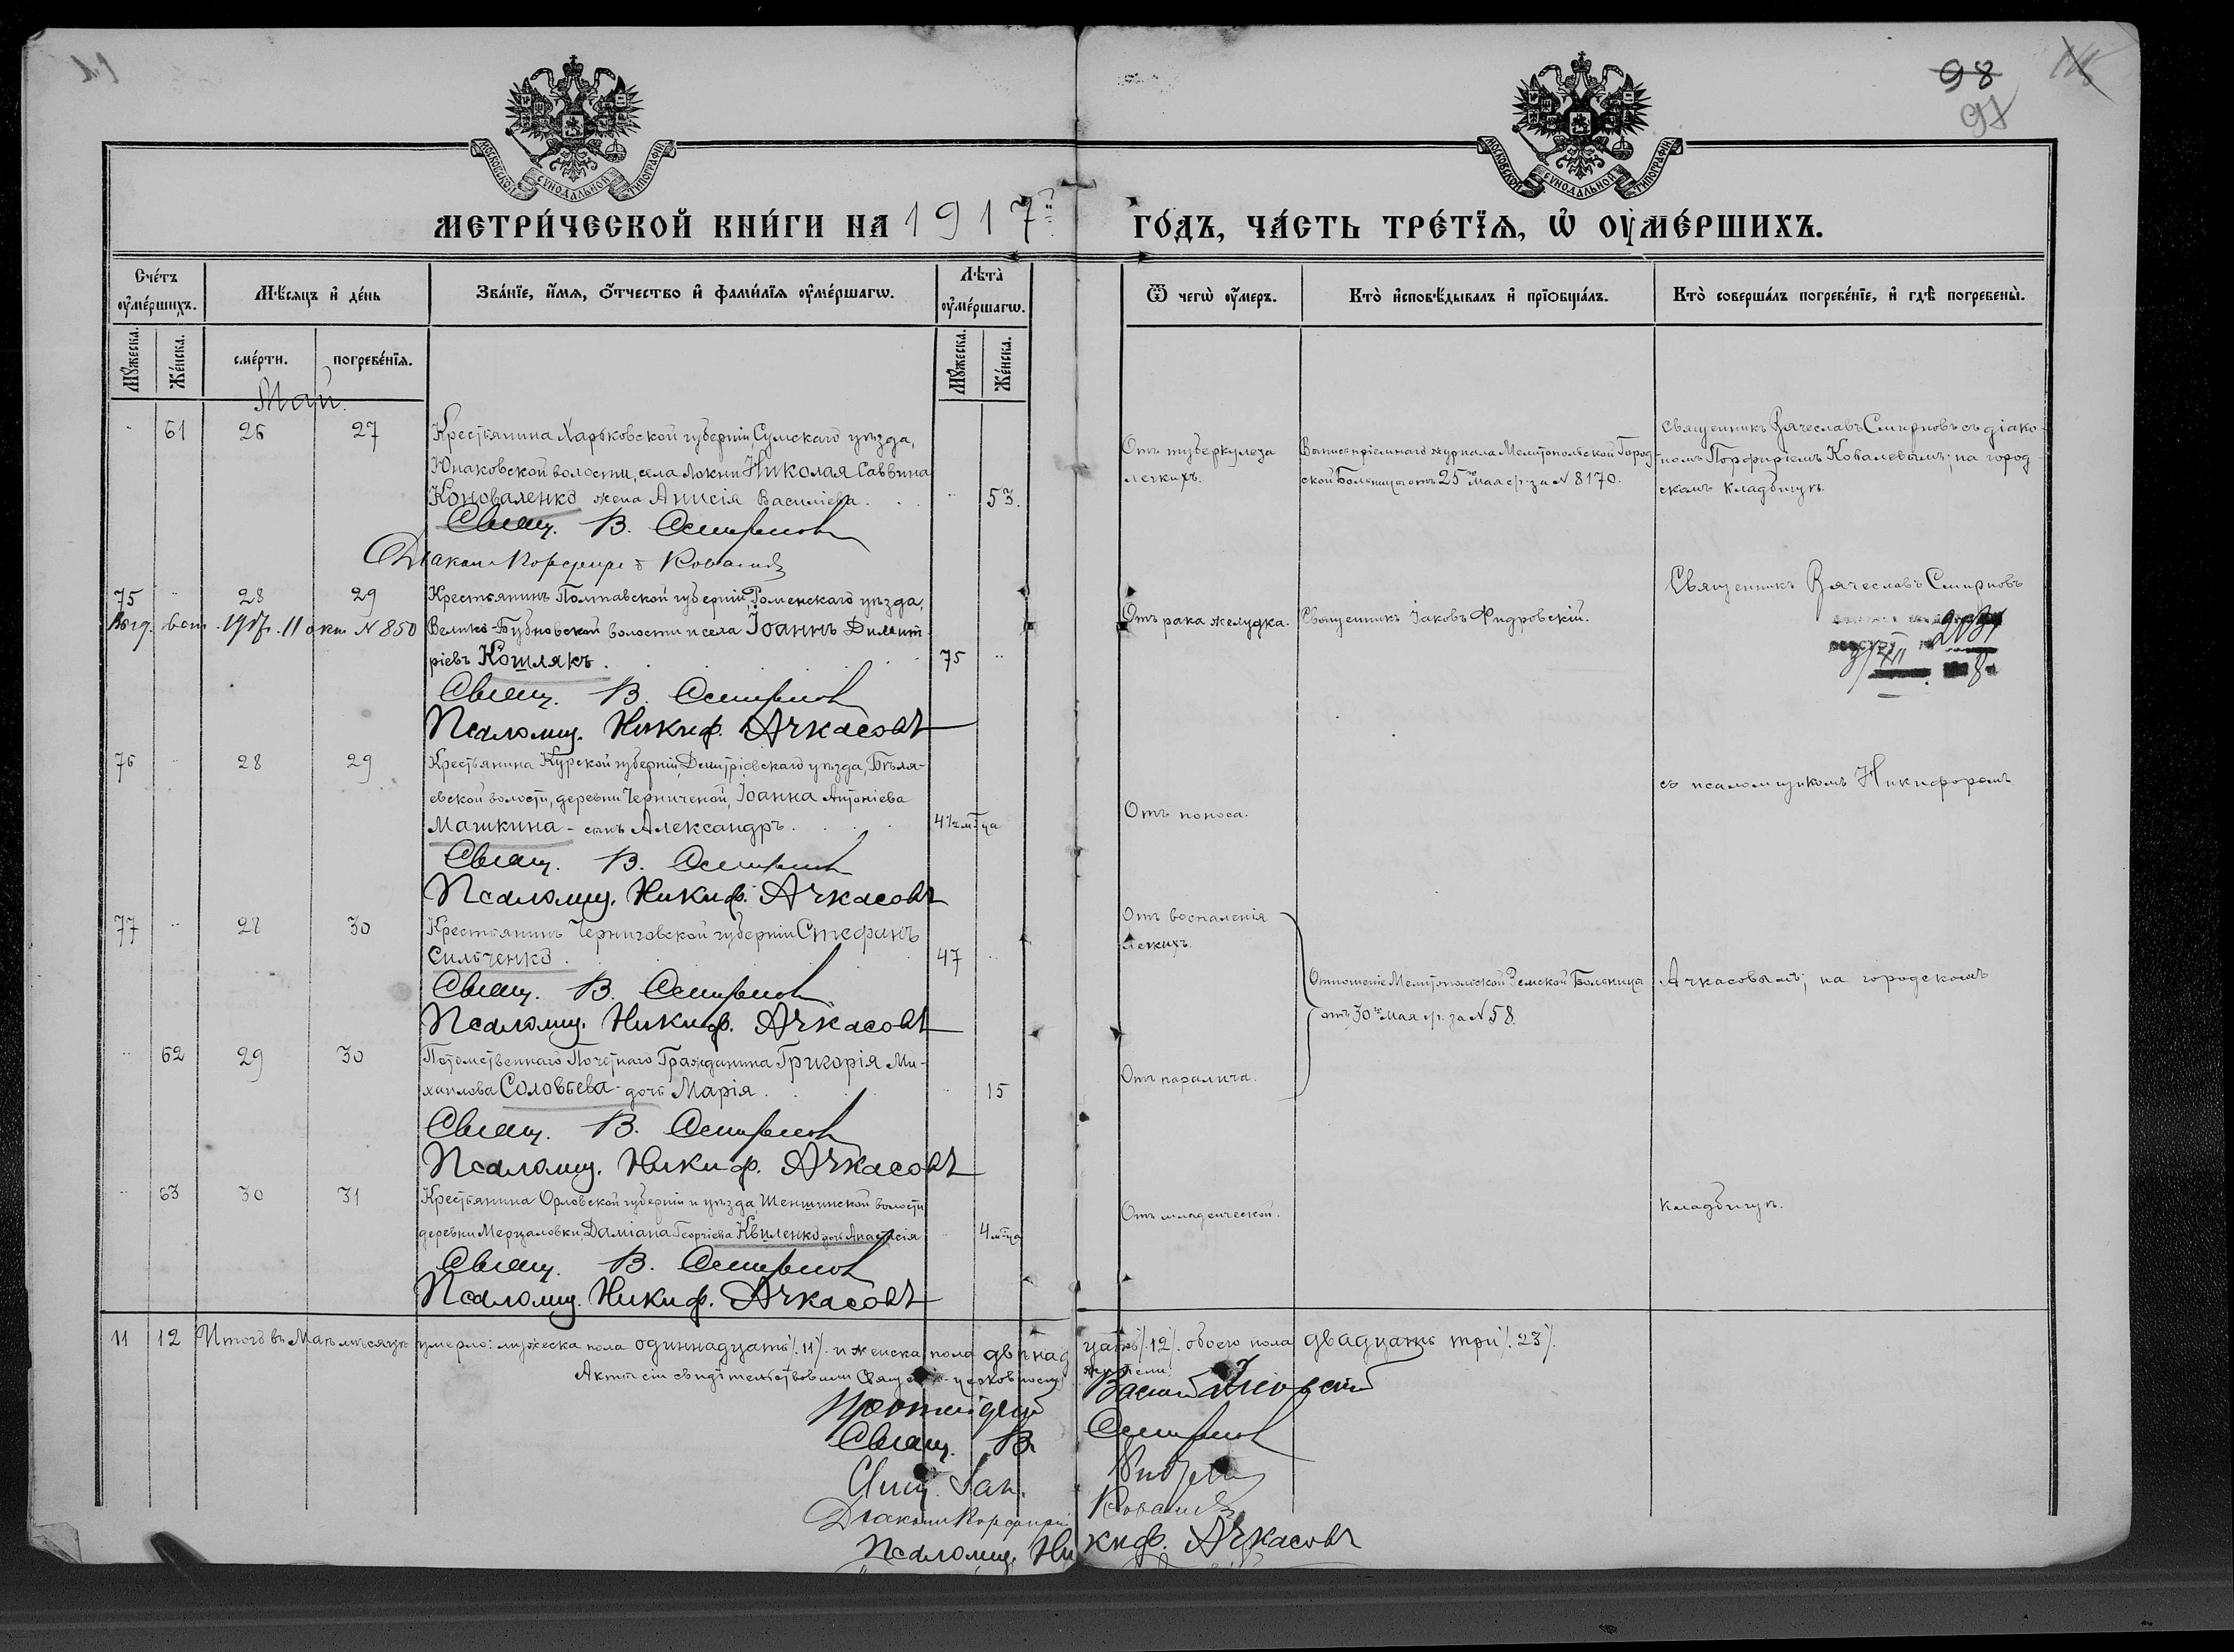 98
97
МОСКОВСКОЙ СѴНОДАЛЬНОЙ ТИПОГРАФІИ
МОСКОВСКОЙ СѴНОДАЛЬНОЙ ТИПОГРАФІИ
МЕТРИ́ЧЕСКОЙ КНИ́ГИ НА 1917
ГО́ДЪ, ЧА́СТЬ ТРЕ́ТЇѦ, Ѡ҆ ОУМЕ́РШИХЪ.
Сче́тъ оу҆ме́ршихъ.
Мѣ́сяцъ и҆ де́нь
Зва́нїе, и҆́мѧ, о҆́тчество и҆ фами́лїѧ оу҆ме́ршагѡ.
Лѣта̀ оу҆ме́ршагѡ.
Ѿ чегѡ̀ оу҆́меръ.
Кто̀ и҆сповѣ́дывалъ и҆ прїѡбща́лъ.
Кто̀ соверша́лъ погребе́нїе, и҆ гдѣ̀ погребены̀.
Мꙋ́жеска. Же́нска. сме́рти. погребе́нїѧ. Мꙋ́жеска. Же́нска.
Май.
61 26 27 Крестьянина Харьковской губерніи, Сумскаго уѣзда,
Юнаковской волости, села Локни Николая Саввина
Коноваленко жена Анисія Василіева. 53.
Свящ. В. Смирновъ
Діаконъ Порфирій Ковалевъ
Отъ туберкулеза
легкихъ.
Выпись пріемнаго журнала Мелитопольской Город-
ской Больницы отъ 25го Мая с/г. за № 8170.
Священникъ Вячеславъ Смирновъ съ діако-
номъ Порфиріемъ Ковалевымъ; на город-
скомъ кладбищѣ.
75 28 29 Крестьянинъ Полтавской губерніи, Роменскаго уѣзда,
1917 г. 11 окт № 850 Велико-Бубновской волости и села Іоаннъ Димит-
ріевъ Кошлякъ. 75
Свящ. В. Смирновъ
Псаломщ. Никиф. Ачкасовъ
Отъ рака желудка.
Священникъ Іаковъ Фидровскій.
Священникъ Вячеславъ Смирновъ
76 28 29 Крестьянина Курской губерніи, Дмитріевскаго уѣзда, Бѣля-
евской волости, деревни Черниченой, Іоанна Антоніева
Машкина - сынъ Александръ. 4½ м-ца
Свящ. В. Смирновъ
Псаломщ. Никиф. Ачкасовъ
Отъ поноса.
съ псаломщикомъ Никифоромъ
77 28 30 Крестьянинъ Черниговской губерніи Стефанъ
Сильченко. 47
Свящ. В. Смирновъ
Псаломщ. Никиф. Ачкасовъ
Отъ воспаленія
легкихъ.
Отношеніе Мелитопольской Земской Больницы
отъ 30го Мая с/г. за № 58.
Ачкасовымъ; на городскомъ
62 29 30 Потомственнаго Почетнаго Гражданина Григорія Ми-
хаилова Соловьева - дочь Марія. 15
Свящ. В. Смирновъ
Псаломщ. Никиф. Ачкасовъ
Отъ паралича.
63 30 31 Крестьянина Орловской губерніи и уѣзда, волости
деревни Мерцаловки, Даміана Георгіева Квиленко дочь Анастасія 4 м-ца
Свящ. В. Смирновъ
Псаломщ. Никиф. Ачкасовъ
Отъ младенческой.
кладбищѣ.
11 12 Итого въ Маѣ мѣсяцѣ умерло: мужеска пола одиннадцать /.11/. и женска пола двѣнад-
цать /.12/. обоего пола двадцать три /.23/.
Акты сіи свидѣтельствовали Священно-церковнослужители:
Протоіерей Василій
Свящ. В. Смирновъ
Свящ. Іак. Фидровскій
Діаконъ Порфирій Ковалевъ
Псаломщ. Никиф. Ачкасовъ